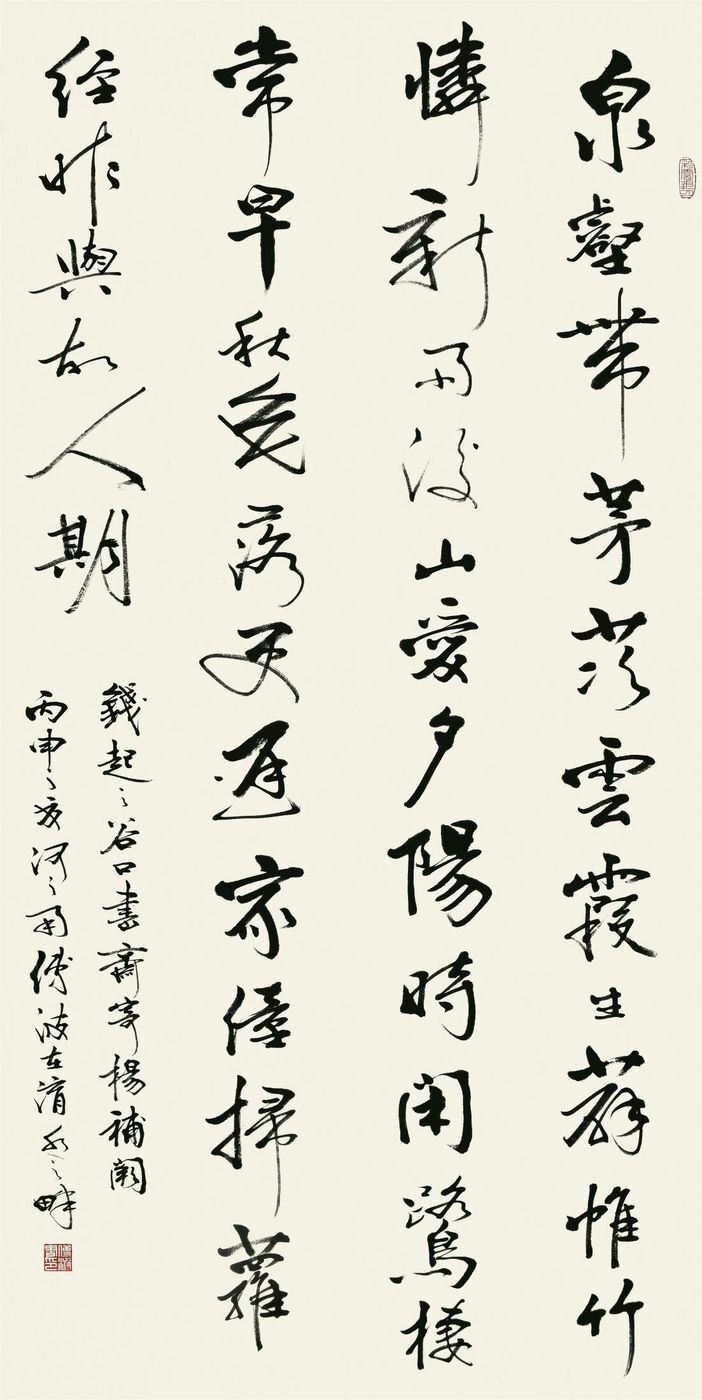 泉壑帶茅茨雲霞生薜帷竹
憐新雨後山愛夕陽時閑鷺棲
常早秋花落更遲家僮掃蘿
經昨與故人期
錢起之谷口書齋寄楊補闕
丙申之夏河之南傅波在淯水之畔